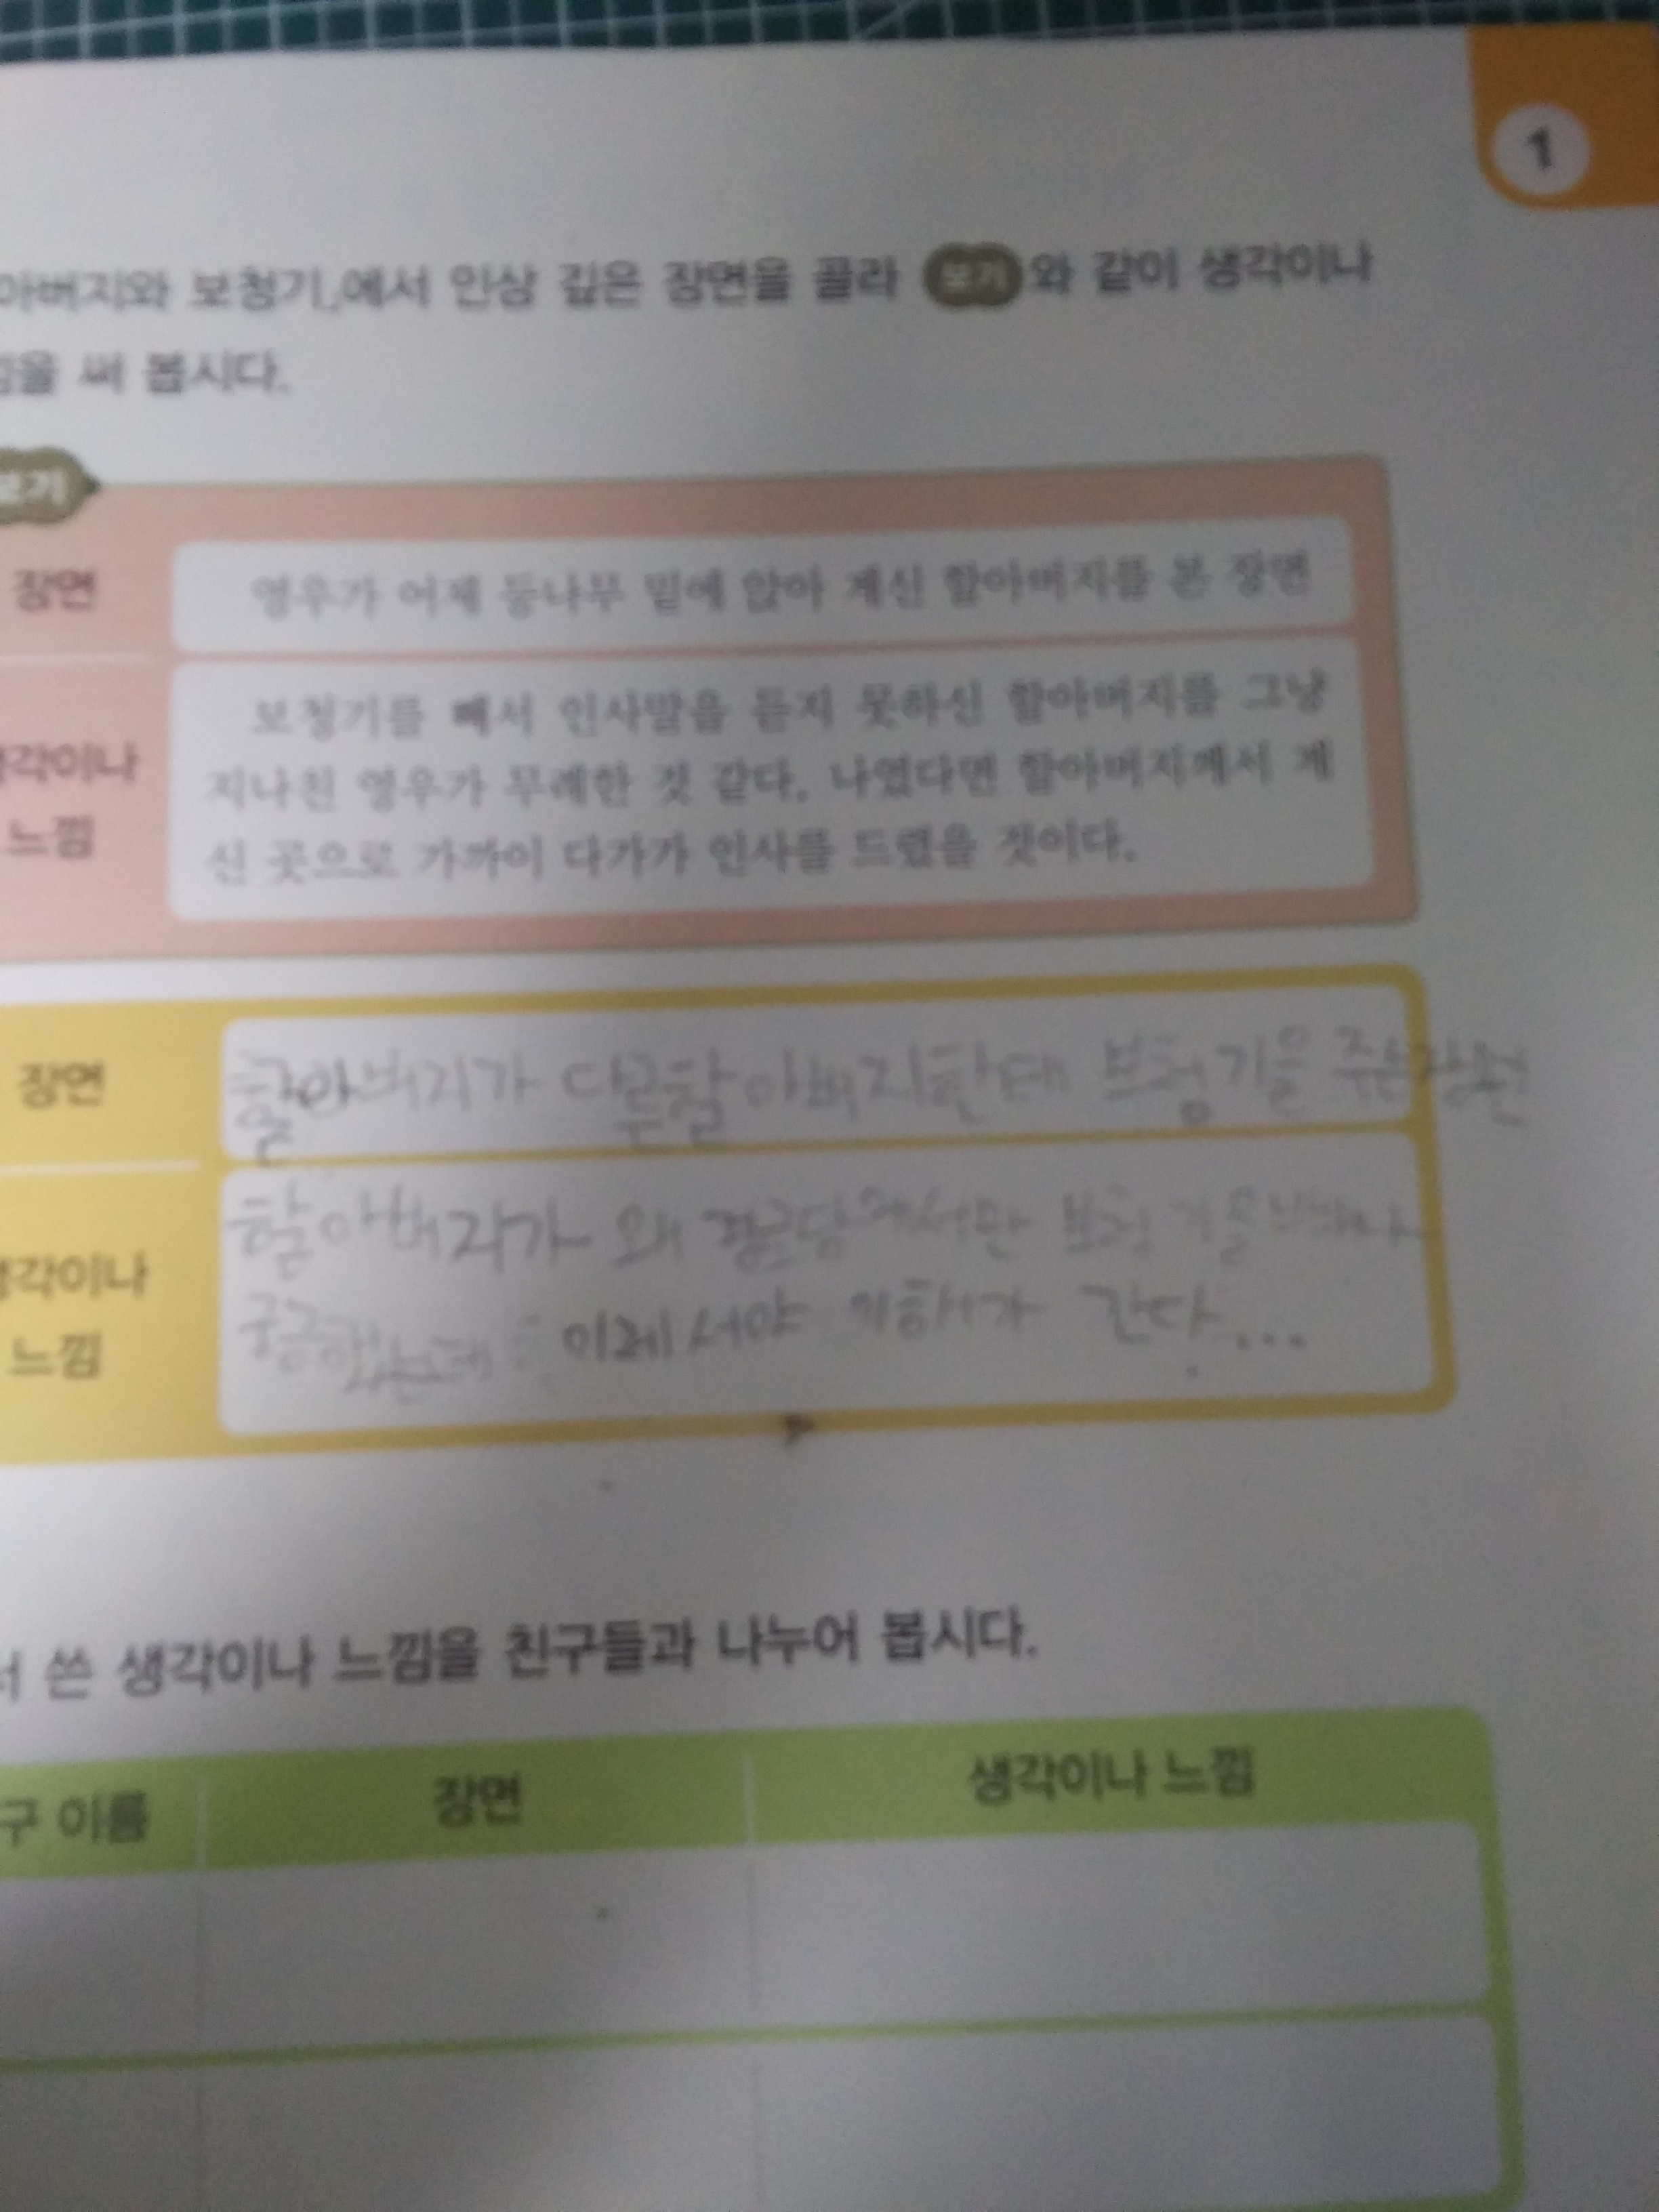 1
아버지와 보청기」에서 인상 깊은 장면을 골라 보기와 같이 생각이나
낌을 써 봅시다.
보기
장면
영우가 어제 등나무 밑에 앉아 계신 할아버지를 본 장면
생각이나
느낌
보청기를 빼서 인사말을 듣지 못하신 할아버지를 그냥
지나친 영우가 무례한 것 같다. 나였다면 할아버지께서 계
신 곳으로 가까이 다가가 인사를 드렸을 것이다.
장면
할아버지가 다른할아버지한테 보청기을 준장면
생각이나
느낌
할아버지가 왜 보청기을
궁금했는데 이제서야 이해가 간다...
서 쓴 생각이나 느낌을 친구들과 나누어 봅시다.
구 이름
장면
생각이나 느낌